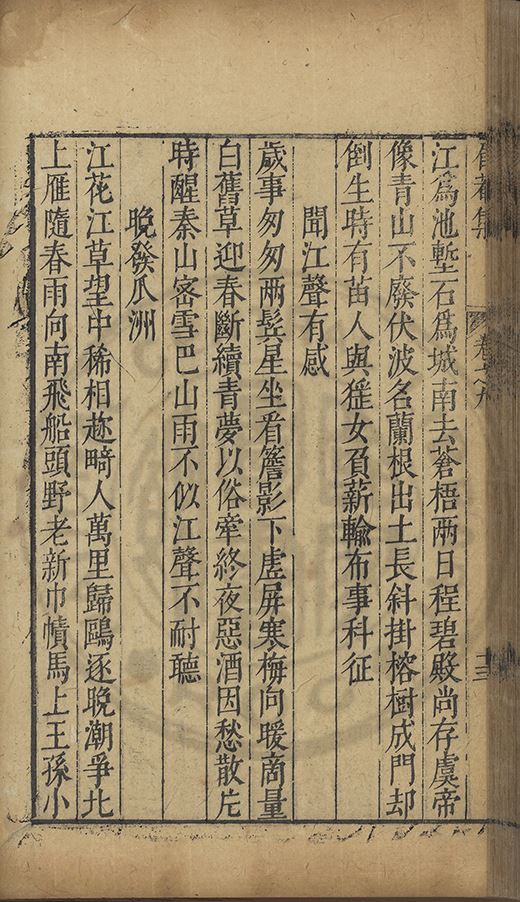 江爲池塹石爲城南去蒼梧兩日程碧殿尚存虞帝
像青山不廢伏波名蘭根出土長斜掛榕樹成門却
倒生時有苗人與猺女負薪輸布事科征
聞江聲有感
歲事匆匆兩鬂星坐看簷影下虛屏寒梅向暖商量
白舊草迎春斷續青夢以俗牽終夜惡酒因愁散片
時醒秦山密雪巴山雨不似江聲不耐聽
晚發瓜洲
江花江草望中稀相趂畸人萬里歸鷗逐晚潮爭北
上雁隨春雨向南飛船頭野老新巾幘馬上王孫小
集
卷十八
十三